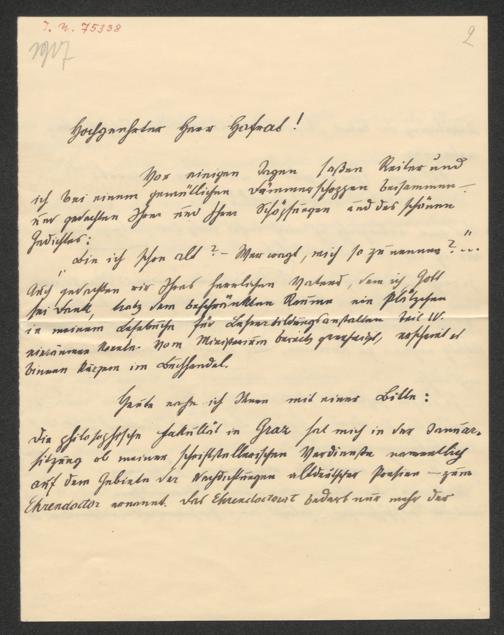 J. N. 75338
1917
2
Hochgeehrter Herr Hofrat!
Vor einigen Tagen saßen Reiter und
ich bei einem gemütlichen Dämmerschoppen beisammen
und gedachten Ihrer und Ihrer Schöpfungen und des schönen
Gedichtes:
"Bin ich schon alt? - Wer wagt, mich so zu nennen?"...
Auch gedachten wir Ihres herrlichen Vaters, dem ich Gott
sei Dank, trotz dem beschränkten Raume ein Plätzchen
in meinem Lesebuche für Lehrerbildungsanstalten Teil IV.
einräumen konnte. Vom Ministerium bereits genehmigt, erscheint es
binnen kurzem im Buchhandel.
Heute nahe ich Ihnen mit einer Bitte:
Die philosophische Fakultät in Graz hat mich in der Januar-
sitzung ob meiner schriftstellerischen Verdienste namentlich
auf dem Gebiete der Nachdichtungen altdeutscher Poesien - zum
Ehrendoctor ernannt. Das Ehrendoctorat bedarf nur mehr der